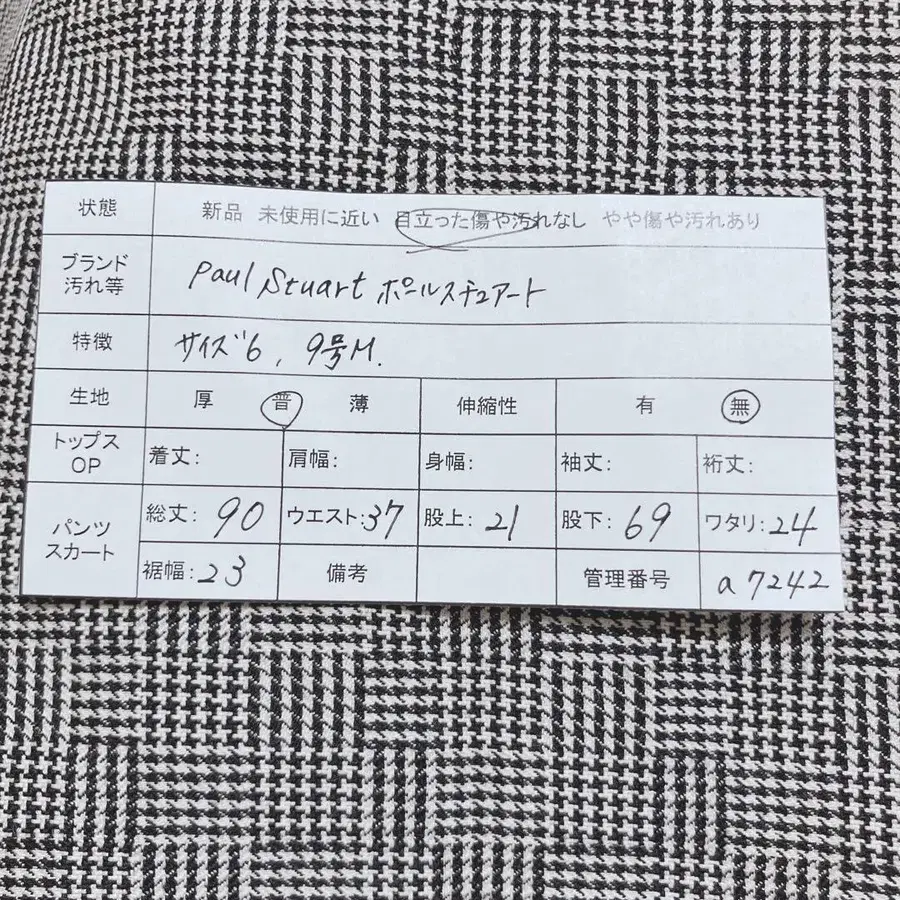 状態 新品 未使用に近い 目立った傷や汚れなし やや傷や汚れあり
ブランド
汚れ等 Paul Stuart ポールスチュアート
特徴 サイズ6, 9号M.
生地 厚 普 薄 伸縮性 有 無
トップス
OP 着丈: 肩幅: 身幅: 袖丈: 裄丈:
パンツ
スカート 総丈: 90 ウエスト:37 股上: 21 股下: 69 ワタリ:24
裾幅:23 備考 管理番号 a7242